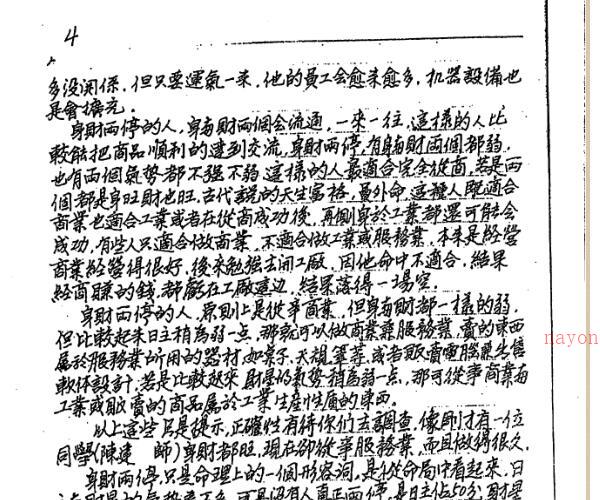 4
多没関係，但只要運氣一來，他的員工会愈来愈多，机器設備也
是會擴充．
身財两停的人，身與財两個会流通，一來一往，這樣的人比
較能把商品順利的達到交流，身財两停，有身與財两個都弱，
也有两個氣势都不强不弱 這樣的人最適合完全從商，若是两
個都是身旺財也旺，古代說的天生富格，員外命，這種人既適合
商業也適合工業或者在從商成功後，再側身於工業都還可能会
成功，有些人只適合做商業，不適合做工業或服務業，本来是經营
商業經營得很好，後來勉強去開工廠，因他命中不適合，結果
經商賺的錢，都虧在工廠這边，結果落得一場空．
身財两停的人，原則上是從事商業，但身與財都一樣的弱，
但比較起來日主稍為弱一点，那就可以做商業兼服務業，賣的東西
屬於服務業所用的器材，如桌子、天規、筆筆，或者販賣電腦兼出售
軟体設計，若是比較起來，財星的氣势稍為弱一点，那可從事商業與
工業或販賣的商品屬於工業生產性質的東西．
以上這些只是提示，正確性有待你们去調查，像剛才有一位
同學(陳連 師)身財都旺，現在卻從事服務業，而且做得很久．
身財两停，只是命理上的一個形容詞，是從命局中看起來，日
nayon